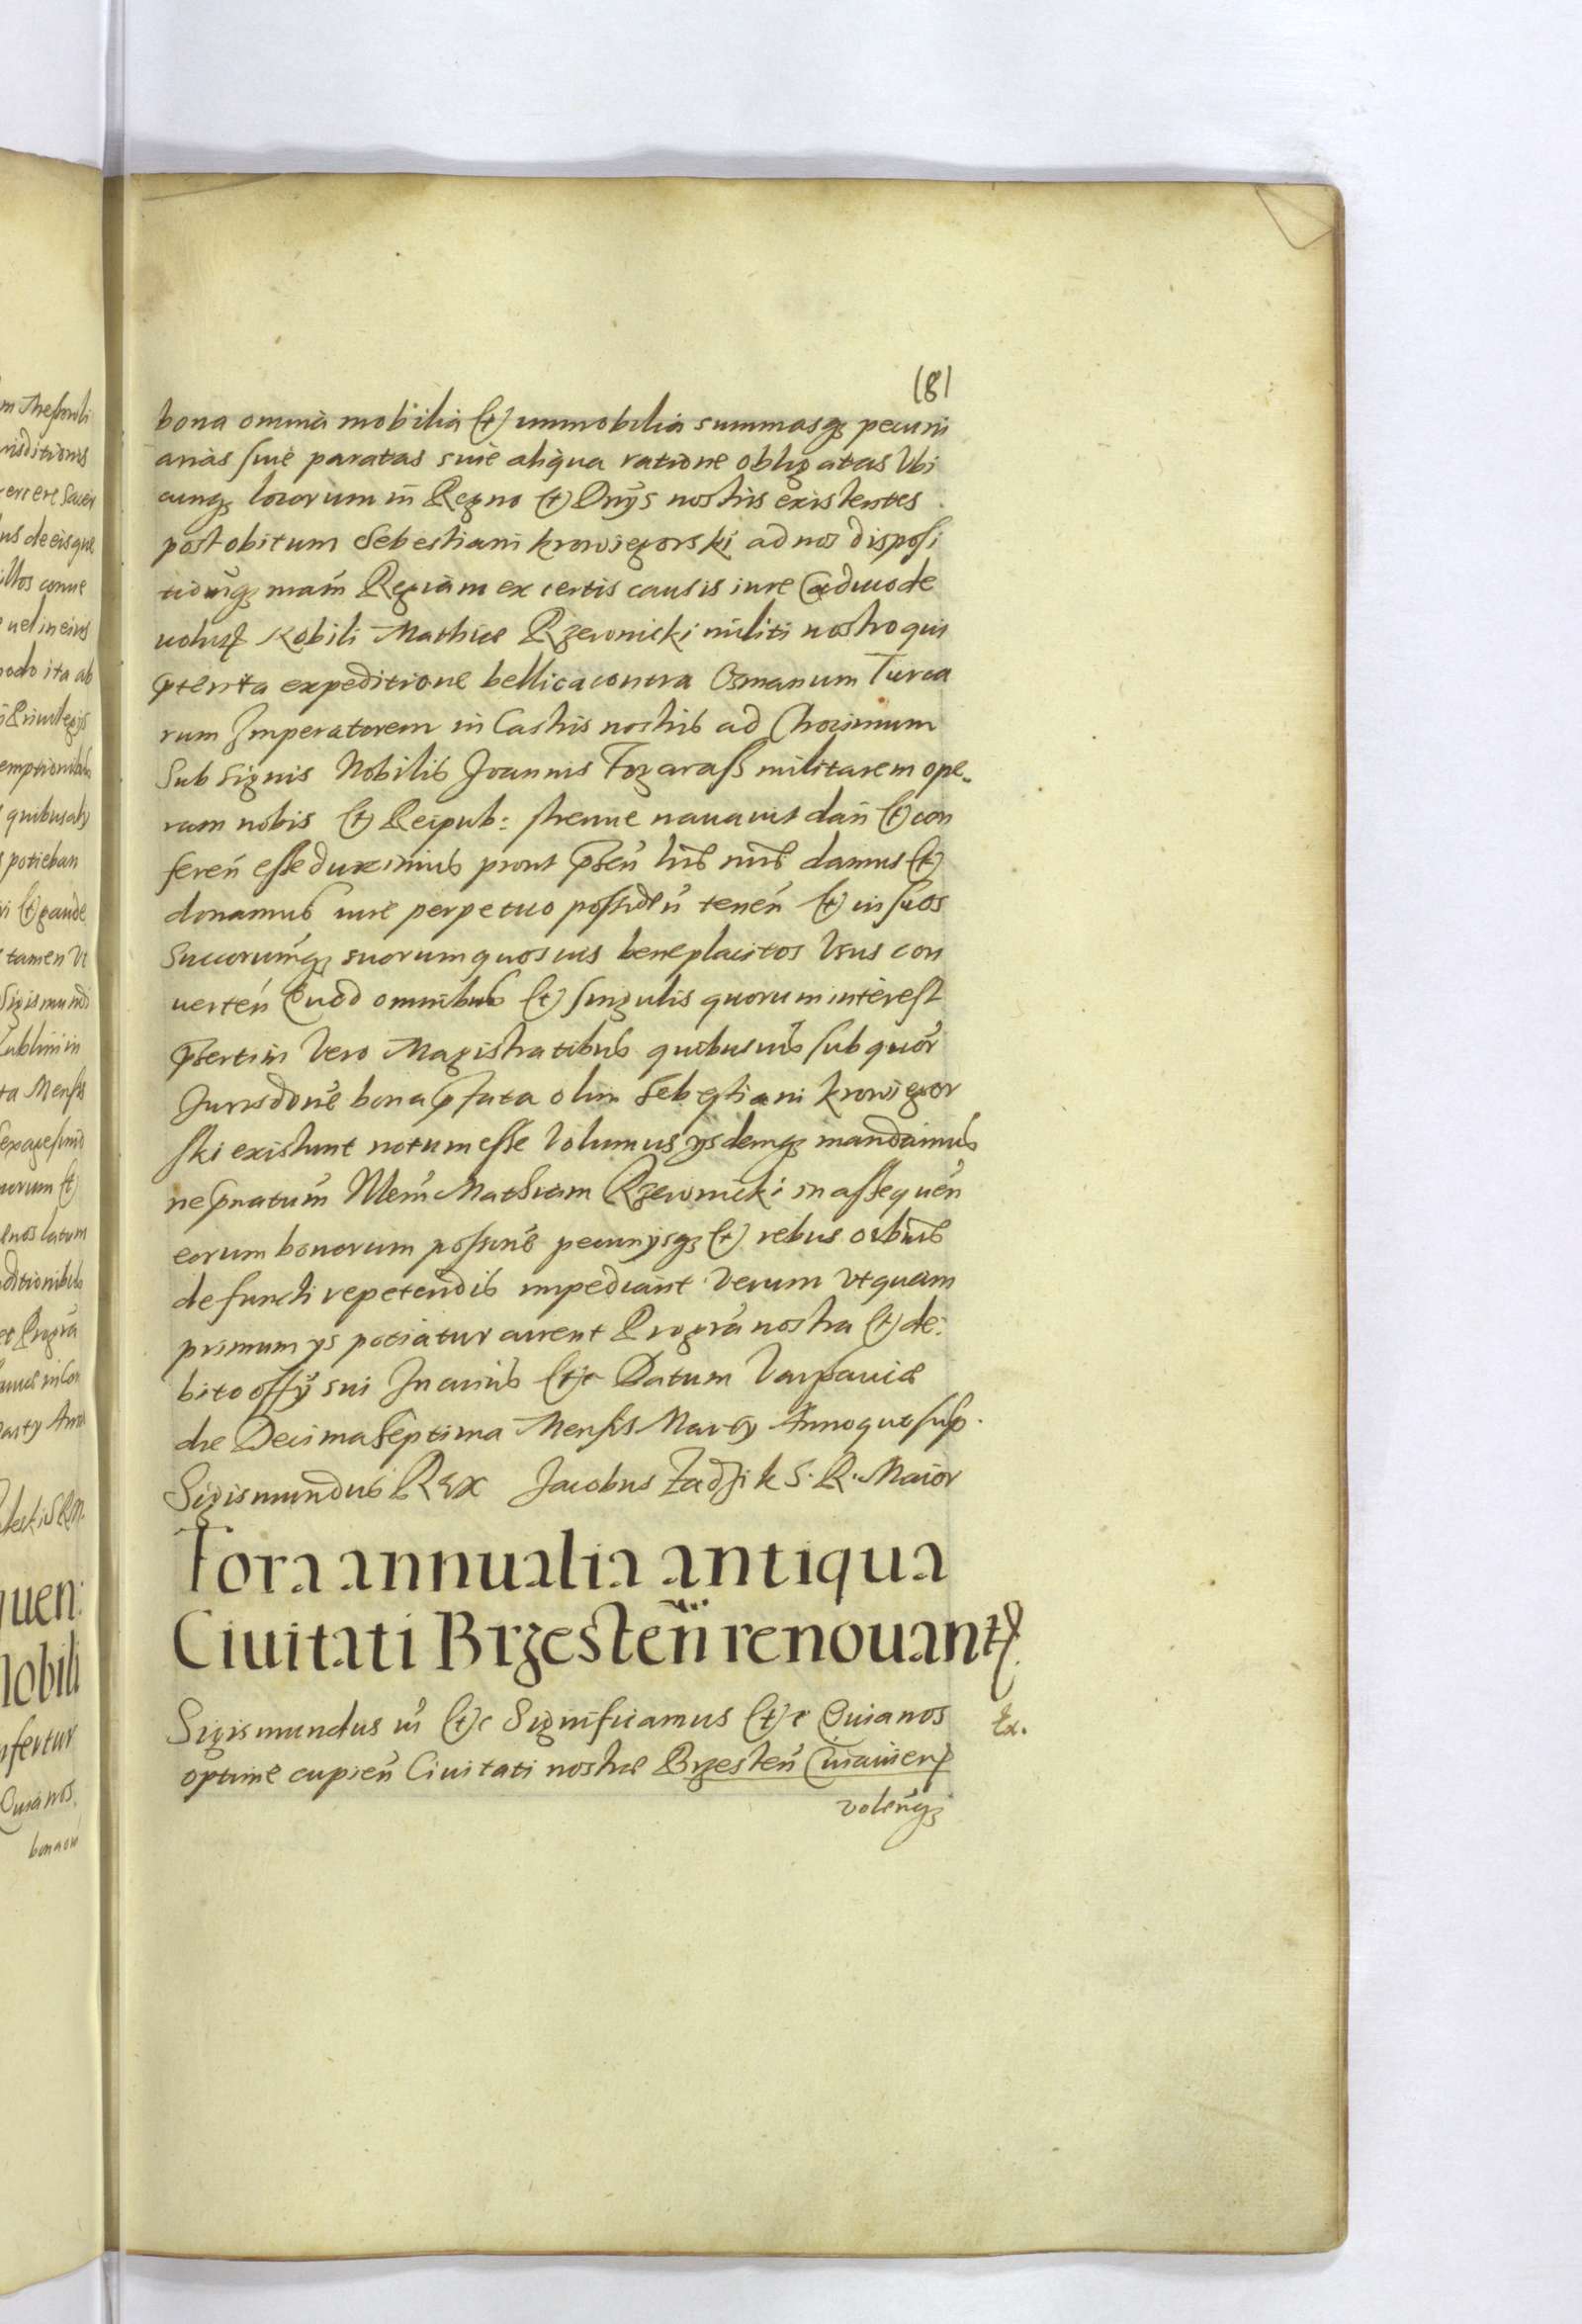 181
bona omnia mobilia et immobilia summasq3 pecuni
arias siue paratas siue aliqua ratione obligatas Vbi
cunq3 locorum in Regno et Dnijs nostris existentes
post obitum Sebestiani Krowiegorski ad nos disposi
tionēq3 nrām Regiam ex certis causis iure Caduco de
uolut Nobili Mathiæ Rzewnicki militi nostro qui
prterita expeditione bellica contra Osmanum Turca
rum Imperatorem in Castris nostris ad Chocimum
Sub Signis Nobilis Joannis Fogarass militarem ope
ram nobis et Reipub: strenue nauauit dan et con
feren esse duximus prout prsen lris nris damus et
donamus iure perpetuo possiden tenen et in suos
Succorumq3 suorum quosuis beneplacitos Vsus con
uerten Quod omnibus et singulis quorum interest
prsertim Vero Magistratibus quibusuis sub quor
Jurisdone bona prfata olim Sebestiani Krowiegor
ski existunt notum esse Volumus ijsdemq3 mandamus
ne prnatum Nlem Mathiam Rzewnicki in assequen
eorum bonorum possone pecunijsq3 et rebus oibus
defuncti repetendis impediant Verum Vt quam
primum ijs potiatur curent Pro gra nostra et de
bito offij sui In cuius etc Datum Varsauiæ
die Decima Septima Mensis Martij Anno quo sup.
Sigismundus Rex Jacobus Zadzik S. R. Maior
Fora annualia antiqua
Ciuitati Brzesten renouant
Sigismundus III etc Significamus etc Quia nos
Ex.
optime cupien Ciuitati nostræ Brzesten Cuiauien
volenq3